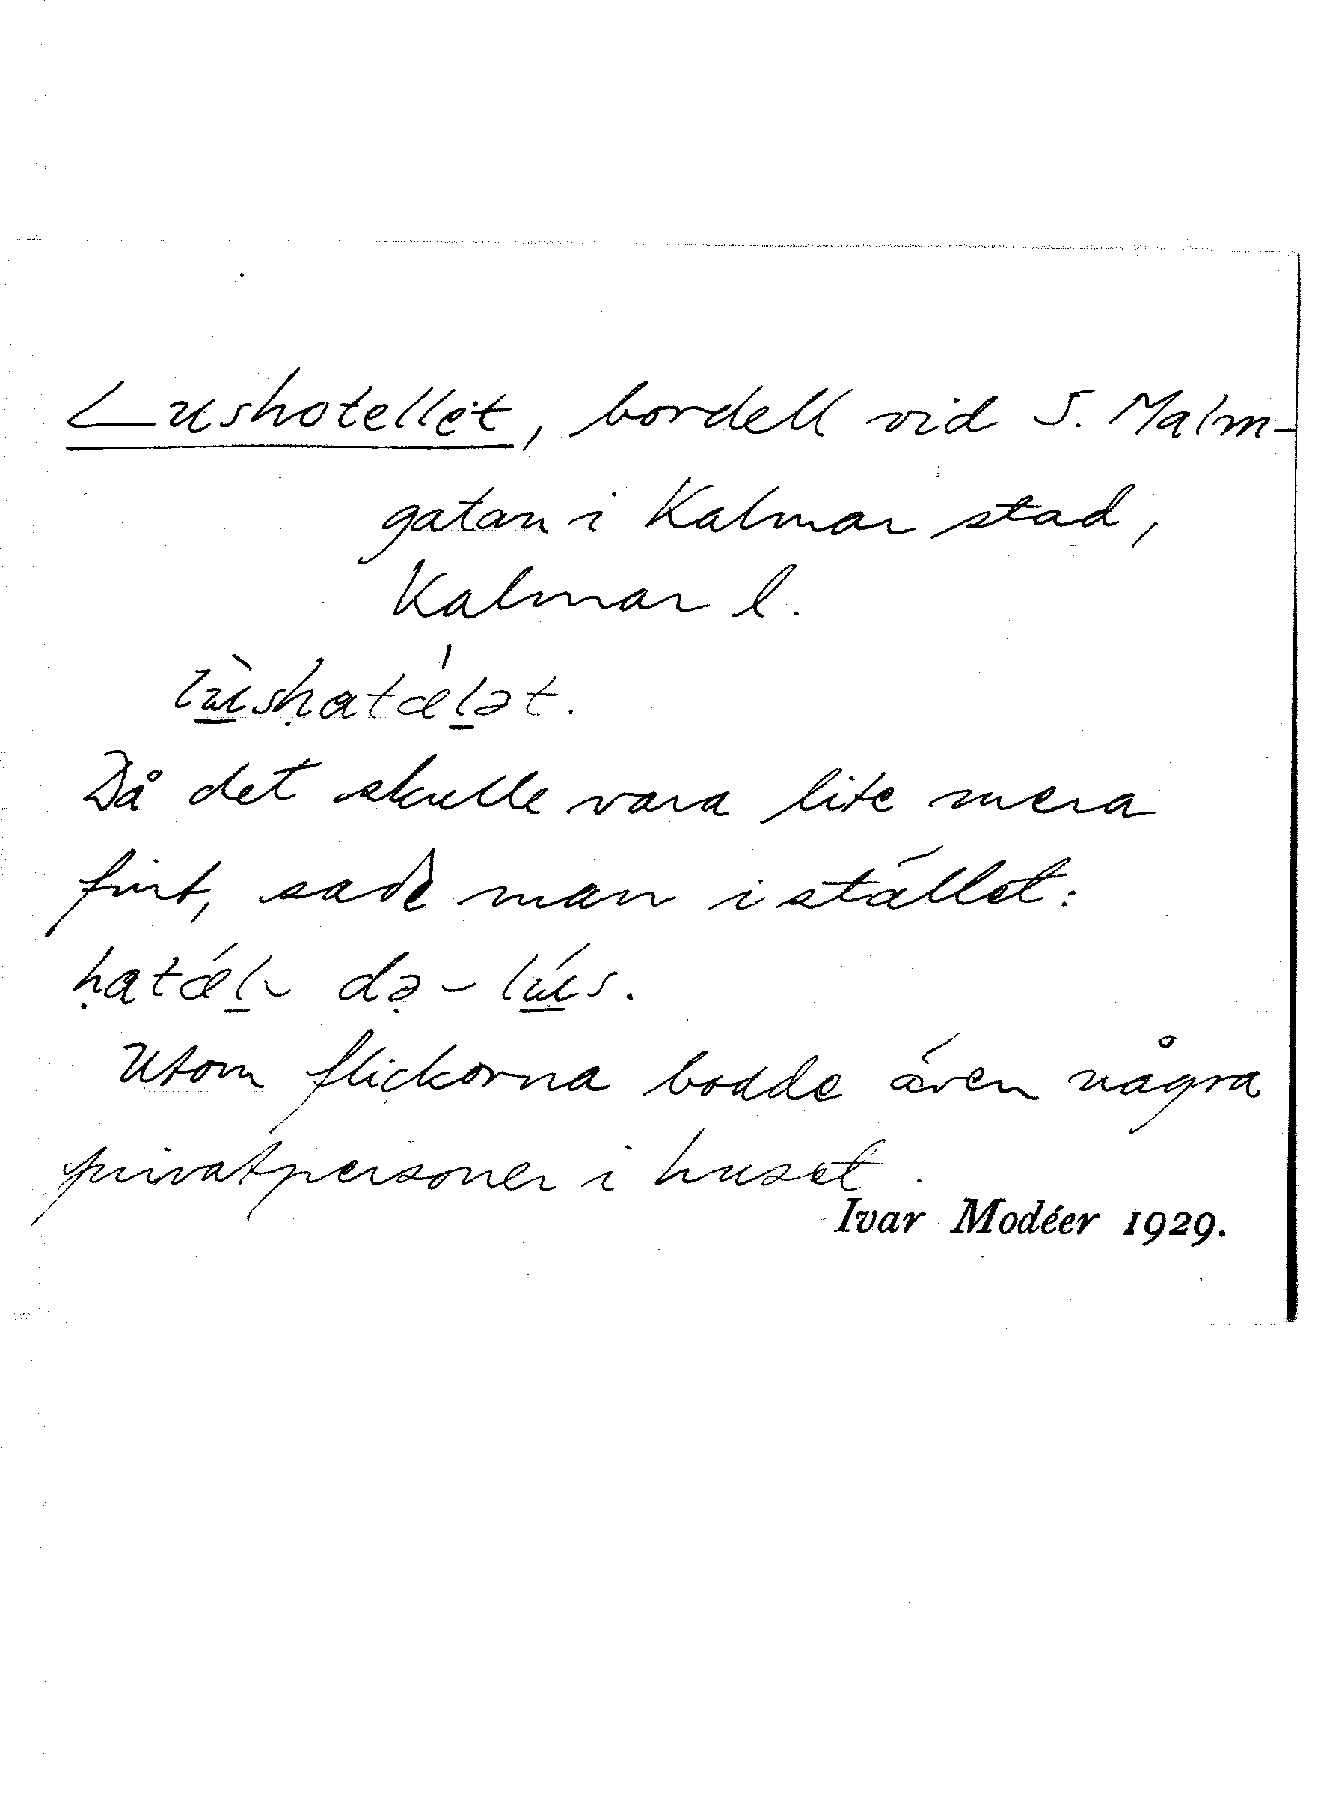 Lushotellet, bordell vid S. Malm-
gatan i Kalmar stad,
Kalmar l.
lùshatǽlət.
Då det skulle vara lite mera
fint, sade man i stället:
hatǽl- də- lús.
Utom flickorna bodde även några
privatpersoner i huset.
Ivar Modéer 1929.